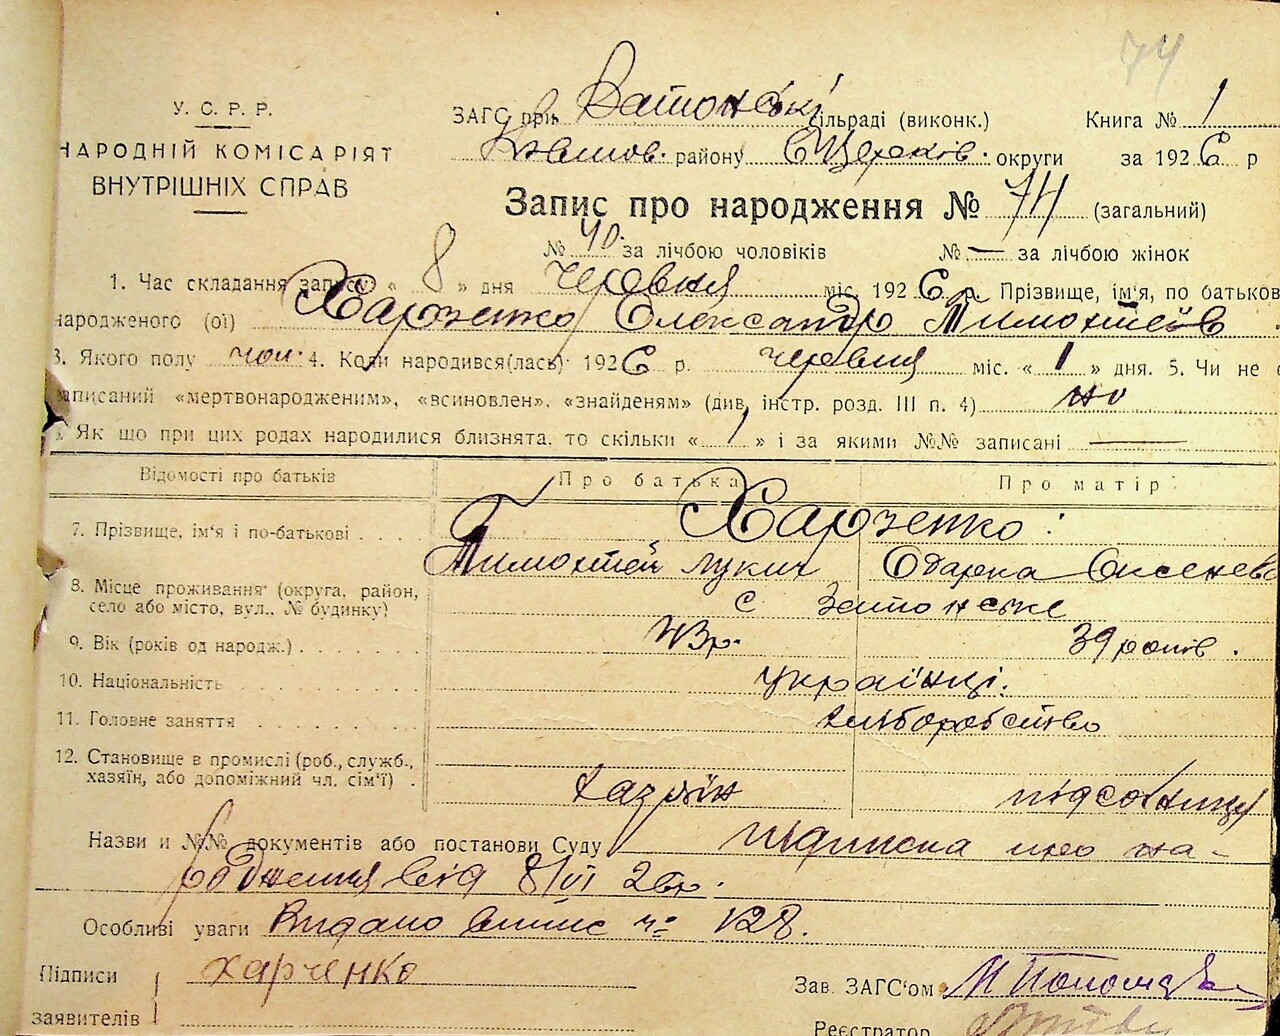 74
У. С. Р. Р.
НАРОДНІЙ КОМІСАРІЯТ
ВНУТРІШНІХ СПРАВ
ЗАГС при сільраді (виконк.) Книга № 1
району Б Церків. округи за 1926 р
Запис про народження № 74 (загальний)
№ 40. за лічбою чоловіків № — за лічбою жінок
1. Час складання запису « 8 » дня червня міс. 1926 р. Прізвище, ім'я, по батькові
народженого (ої) Харченко Олександр Тимохтеїв
3. Якого полу чол. 4. Коли народився(лась) 1926 р. червня міс. « 1 » дня. 5. Чи не є
записаний «мертвонародженим», «всиновлен», «знайденям» (див. інстр. розд. III п. 4) но
6. Як що при цих родах народилися близнята, то скільки « 1 » і за якими №№ записані —
Відомості про батьків Про батька Про матір
7. Прізвище, ім'я і по-батькові . . . . Харченко:
Тимохтей Лукич Одарка
8. Місце проживання (округа, район,
село або місто, вул., № будинку) с Затонське
9. Вік (років од народж.) . . . . . . 43р. 39 років.
10. Національність українці.
11. Головне заняття хліборобство
12. Становище в промислі (роб., служб.,
хазяїн, або допоміжний чл. сім'ї) . хазяїн підсобниця
Назви и №№ документів або постанови Суду підписка про на-
родження від 8/VI 26р.
Особливі уваги Видано випис ч: 128.
Підписи Харченко Зав. ЗАГС'ом
заявителів
Реєстратор